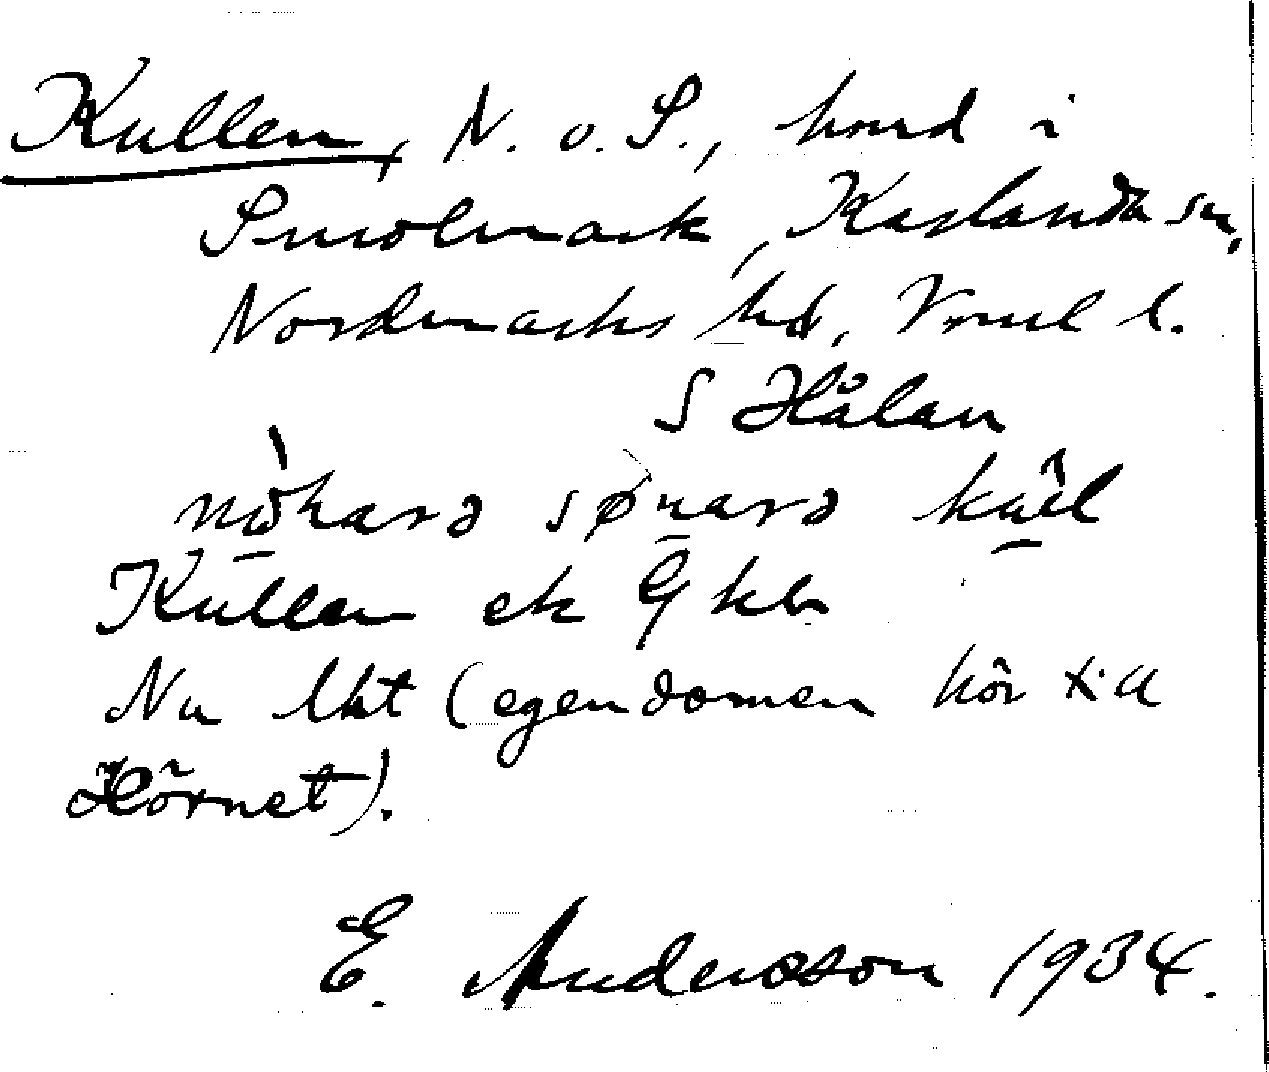 Kullen, N. o. S., hmd i
Smolmark, Karlanda sn,
Nordmarks hd, Vrml l.
S Hålan
Kullen ek Gkb
Nu lht (egendomen hör till
Hörnet).
E. Andersson 1934.